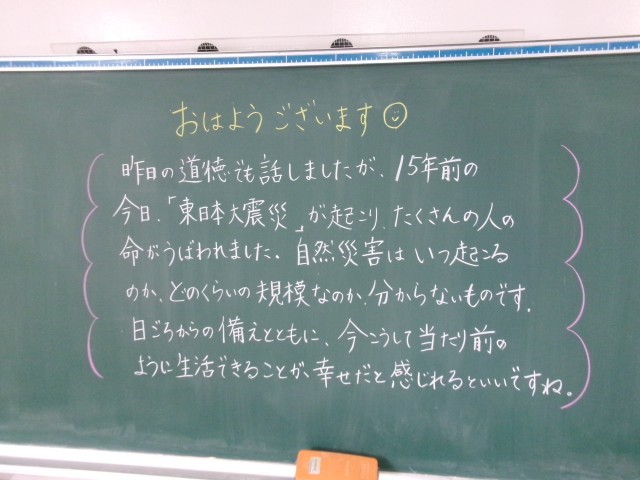 おはようございます
昨日の道徳でも話しましたが、15年前の
今日、「東日本大震災」が起こり、たくさんの人の
命がうばわれました。自然災害はいつ起こる
のか、どのくらいの規模なのか、分からないものです。
日ごろからの備えとともに、今こうして当たり前の
ように生活できることが、幸せだと感じれるといいですね。